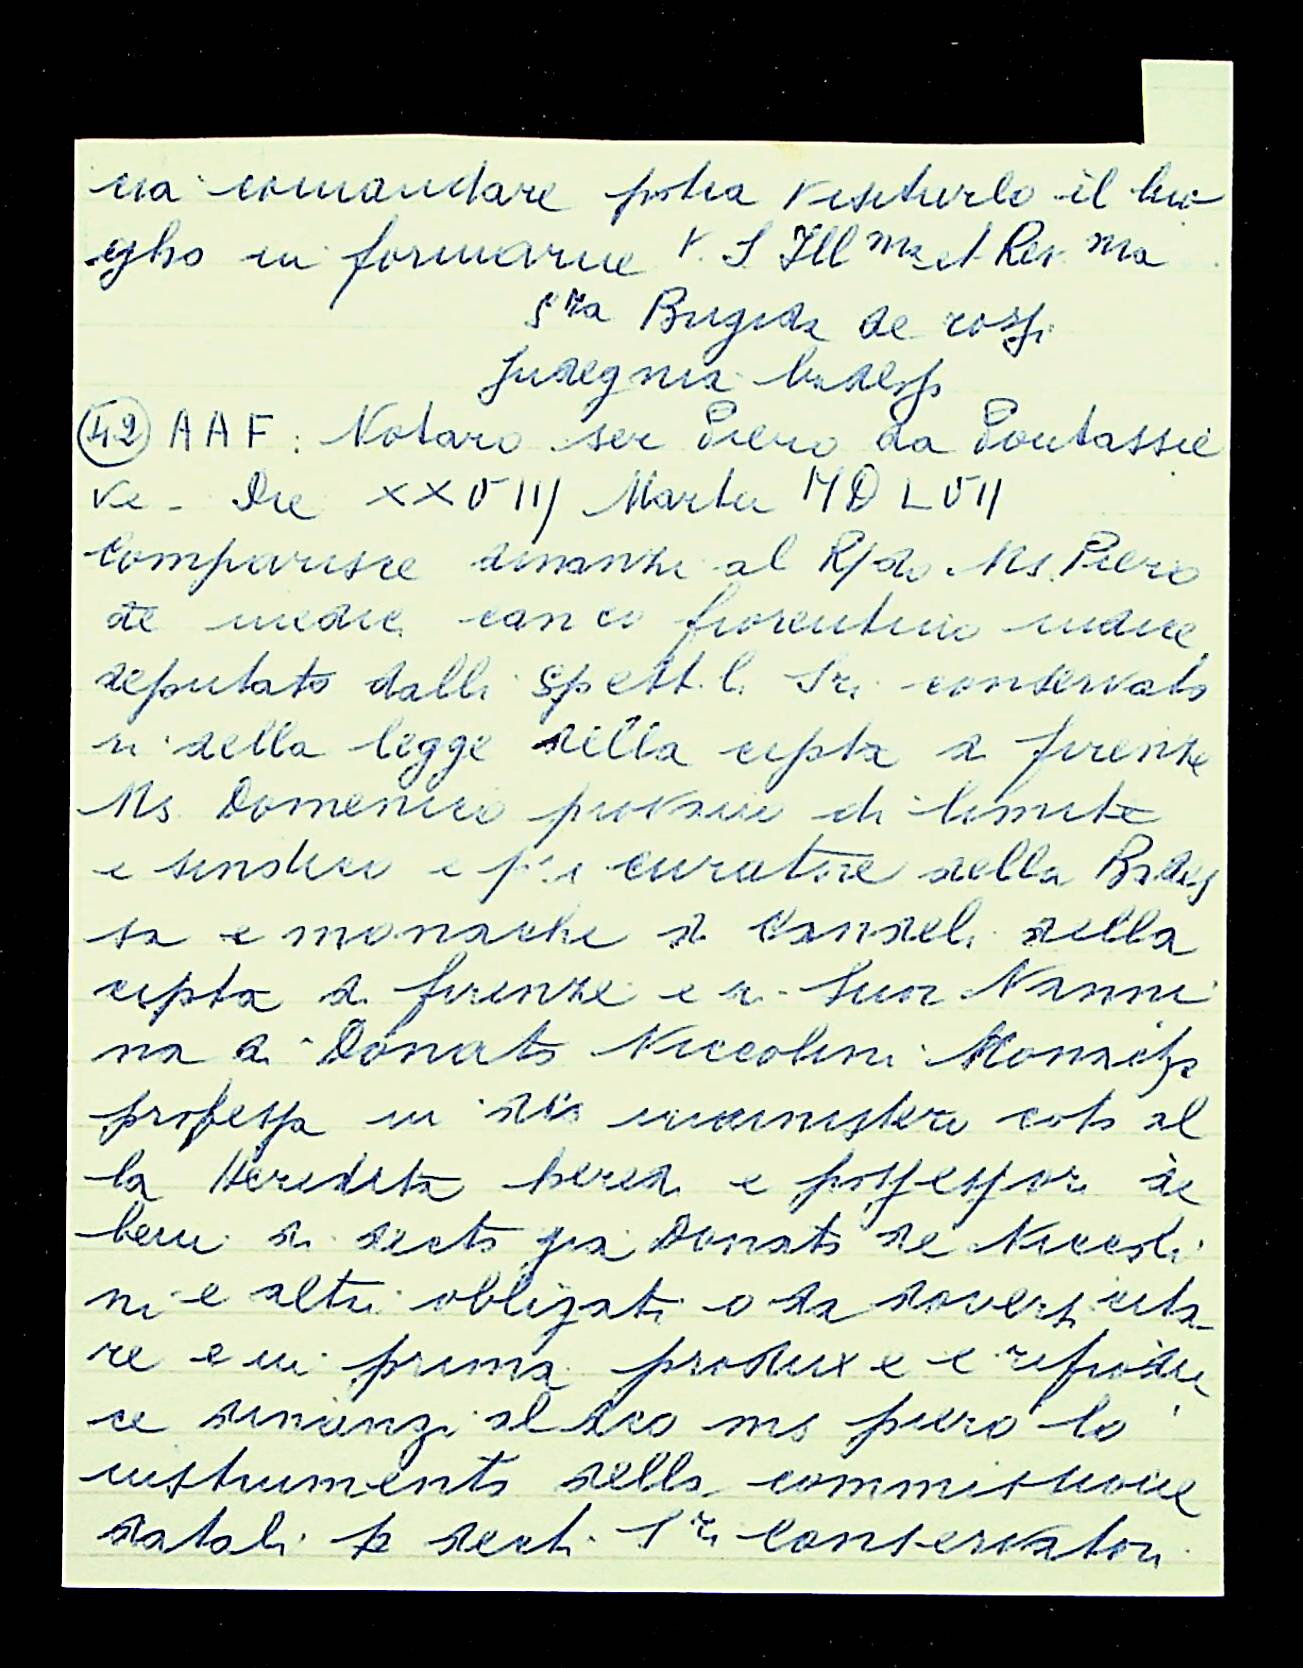 cia comandare potra visitarlo il luo
gho en formarne V. S Ill ma et Rev. ma
Sra Brigida de rossi
Indegnia badess
(42) AAF: Notaro ser Piero da Pontassie
ve - Die XXVIII Martii MDLVII
Comparisce dinanzi al R/do Ms. Piero
de medici can co fiorentino iudice
deputato dalli spett.li Sri conservato
ri della legge della cipta di firenze
Ms Domenico di limite
e sindico e curatore della Bades
sa e monache di Candeli della
cipta di firenze e di Suor Nanni
na di Donato Niccolini Monacha
professa in dco munistero coto al
la Heredita heredi e possessori de
beni di decto gia Donato de Niccoli
ni e altri obligati o da doversi cita-
re e in prima produxe e riprodu
ce dinanzi al dco ms piero lo
instrumento della commissione
datali p decti Sri Conservatori